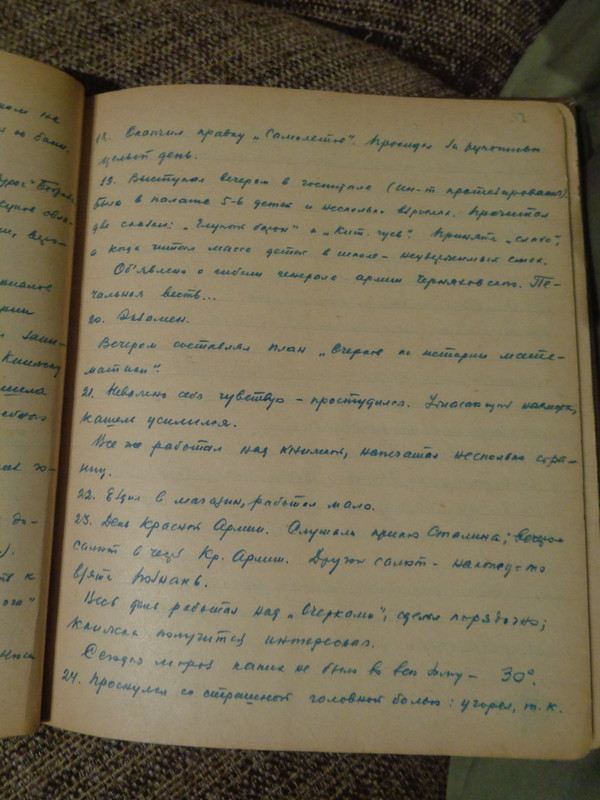 ном на
по бани.
18. Окончил правку „Самолетов". Просидел за рукописью
целый день.
19. Выступал вечером в госпитале (ин-т протезирования).
было в палате 5-6 деток и несколько взрослых. Прочитал
две сказки: „Глупый барон" и „Кит. гусь". Принята „слабо",
а когда читал масса деток в школе - неудержимый смех.
Объявлено о гибели генерала армии Черняховского. Пе-
чальная весть...
20. Экзамен.
Вечером составлял план „Очерков по истории мате-
матики".
21. Неважно себя чувствую - простудился. Ужасающий насморк,
кашель усилился.
Все же работал над книжкой, напечатал несколько стра-
ниц.
22. Ездил в магазин, работал мало.
23. День Красной Армии. Слушали приказ Сталина; вечером
салют в честь Кр. Армии. Другой салют - наконец-то
взята Познань.
Весь день работал над „Очерками", сделал порядочно;
книжка получится интересная.
Сегодня мороз каких не было во всю зиму - 30°.
24. Проснулся со страшной головной болью: угорел, т.к.